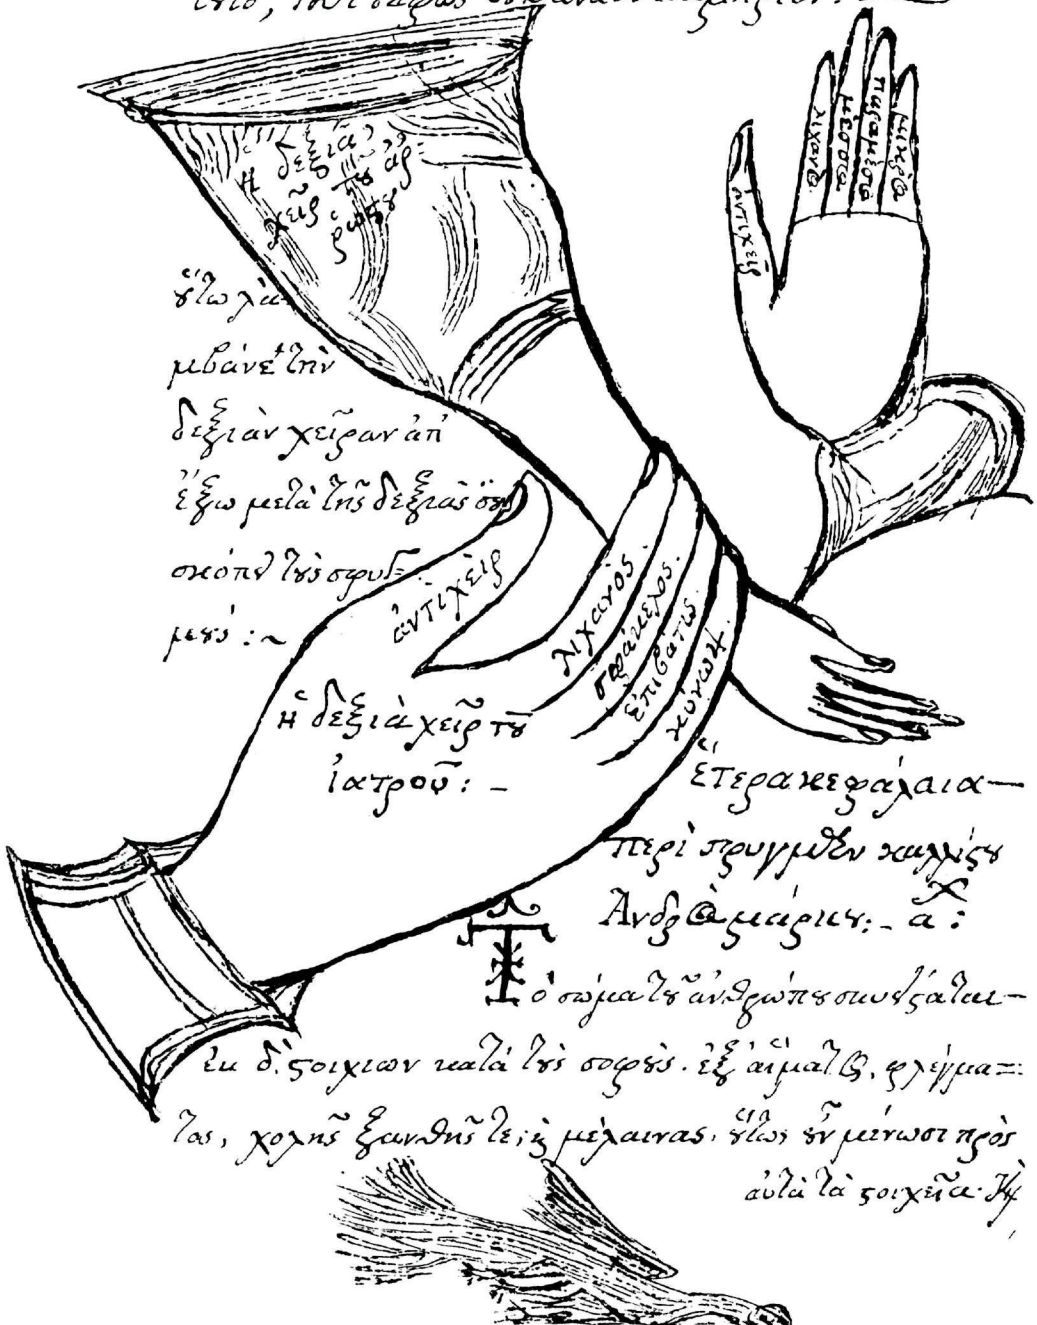 ἡ δεξιὰ
χεὶρ τοῦ ἀρ-
ρώστου
ἀντίχειρ
λιχανὸς
μέσος
παράμεσος
μικρὸς
οὕτω λα-
μβάνε τὴν
δεξιὰν χεῖραν ἀπ'
ἔξω μετὰ τῆς δεξιᾶς
σκόπει τοὺς σφυγ=
μούς :~
ἀντίχειρ
λιχανὸς.
σφάκελος.
ἐπιβάτης.
ἡ δεξιὰ χεὶρ τοῦ
ἰατροῦ: -
ἕτερα κεφάλαια —
περὶ
α:
Τὸ σῶμα τοῦ ἀνθρώπου συνίσταται -
ἐκ δ. στοιχίων κατὰ τοὺς σοφοὺς. ἐξ αἵματος, φλέγμα=
τος, χολῆς ξανθῆς τε, καὶ μέλαινας. οὕτως οὖν μένωσι πρὸς
αὐτὰ τὰ στοιχεῖα.